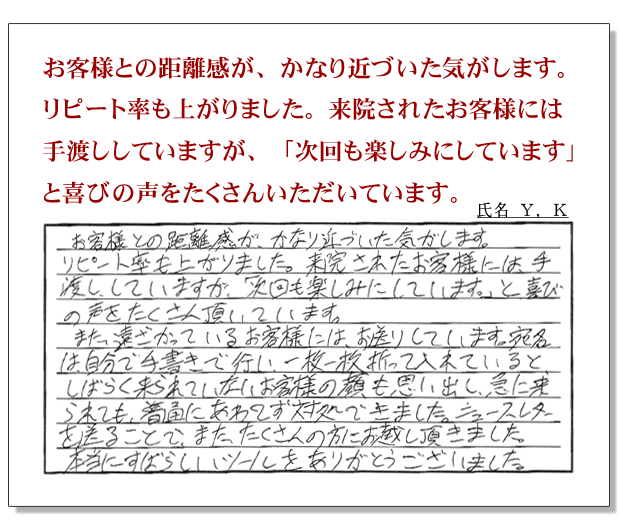 お客様との距離感が、かなり近づいた気がします。
リピート率も上がりました。来院されたお客様には
手渡ししていますが、「次回も楽しみにしています」
と喜びの声をたくさんいただいています。
氏名 Y，K
お客様との距離感が、かなり近づいた気がします。
リピート率も上がりました。来院されたお客様には、手
渡し、していますが、「次回も楽しみにしています。」と喜び
の声をたくさん頂いています。
また、遠ざかっているお客様には、お送りしています。宛名
は自分で手書きで行い一枚一枚折って入れていると、
しばらく来られていないお客様の顔も思い出し、急に来
られても、普通にあわてず対処できました。ニュースレター
を送ることで、また、たくさんの方にお越し頂きました。
本当にすばらしいツールをありがとうございました。